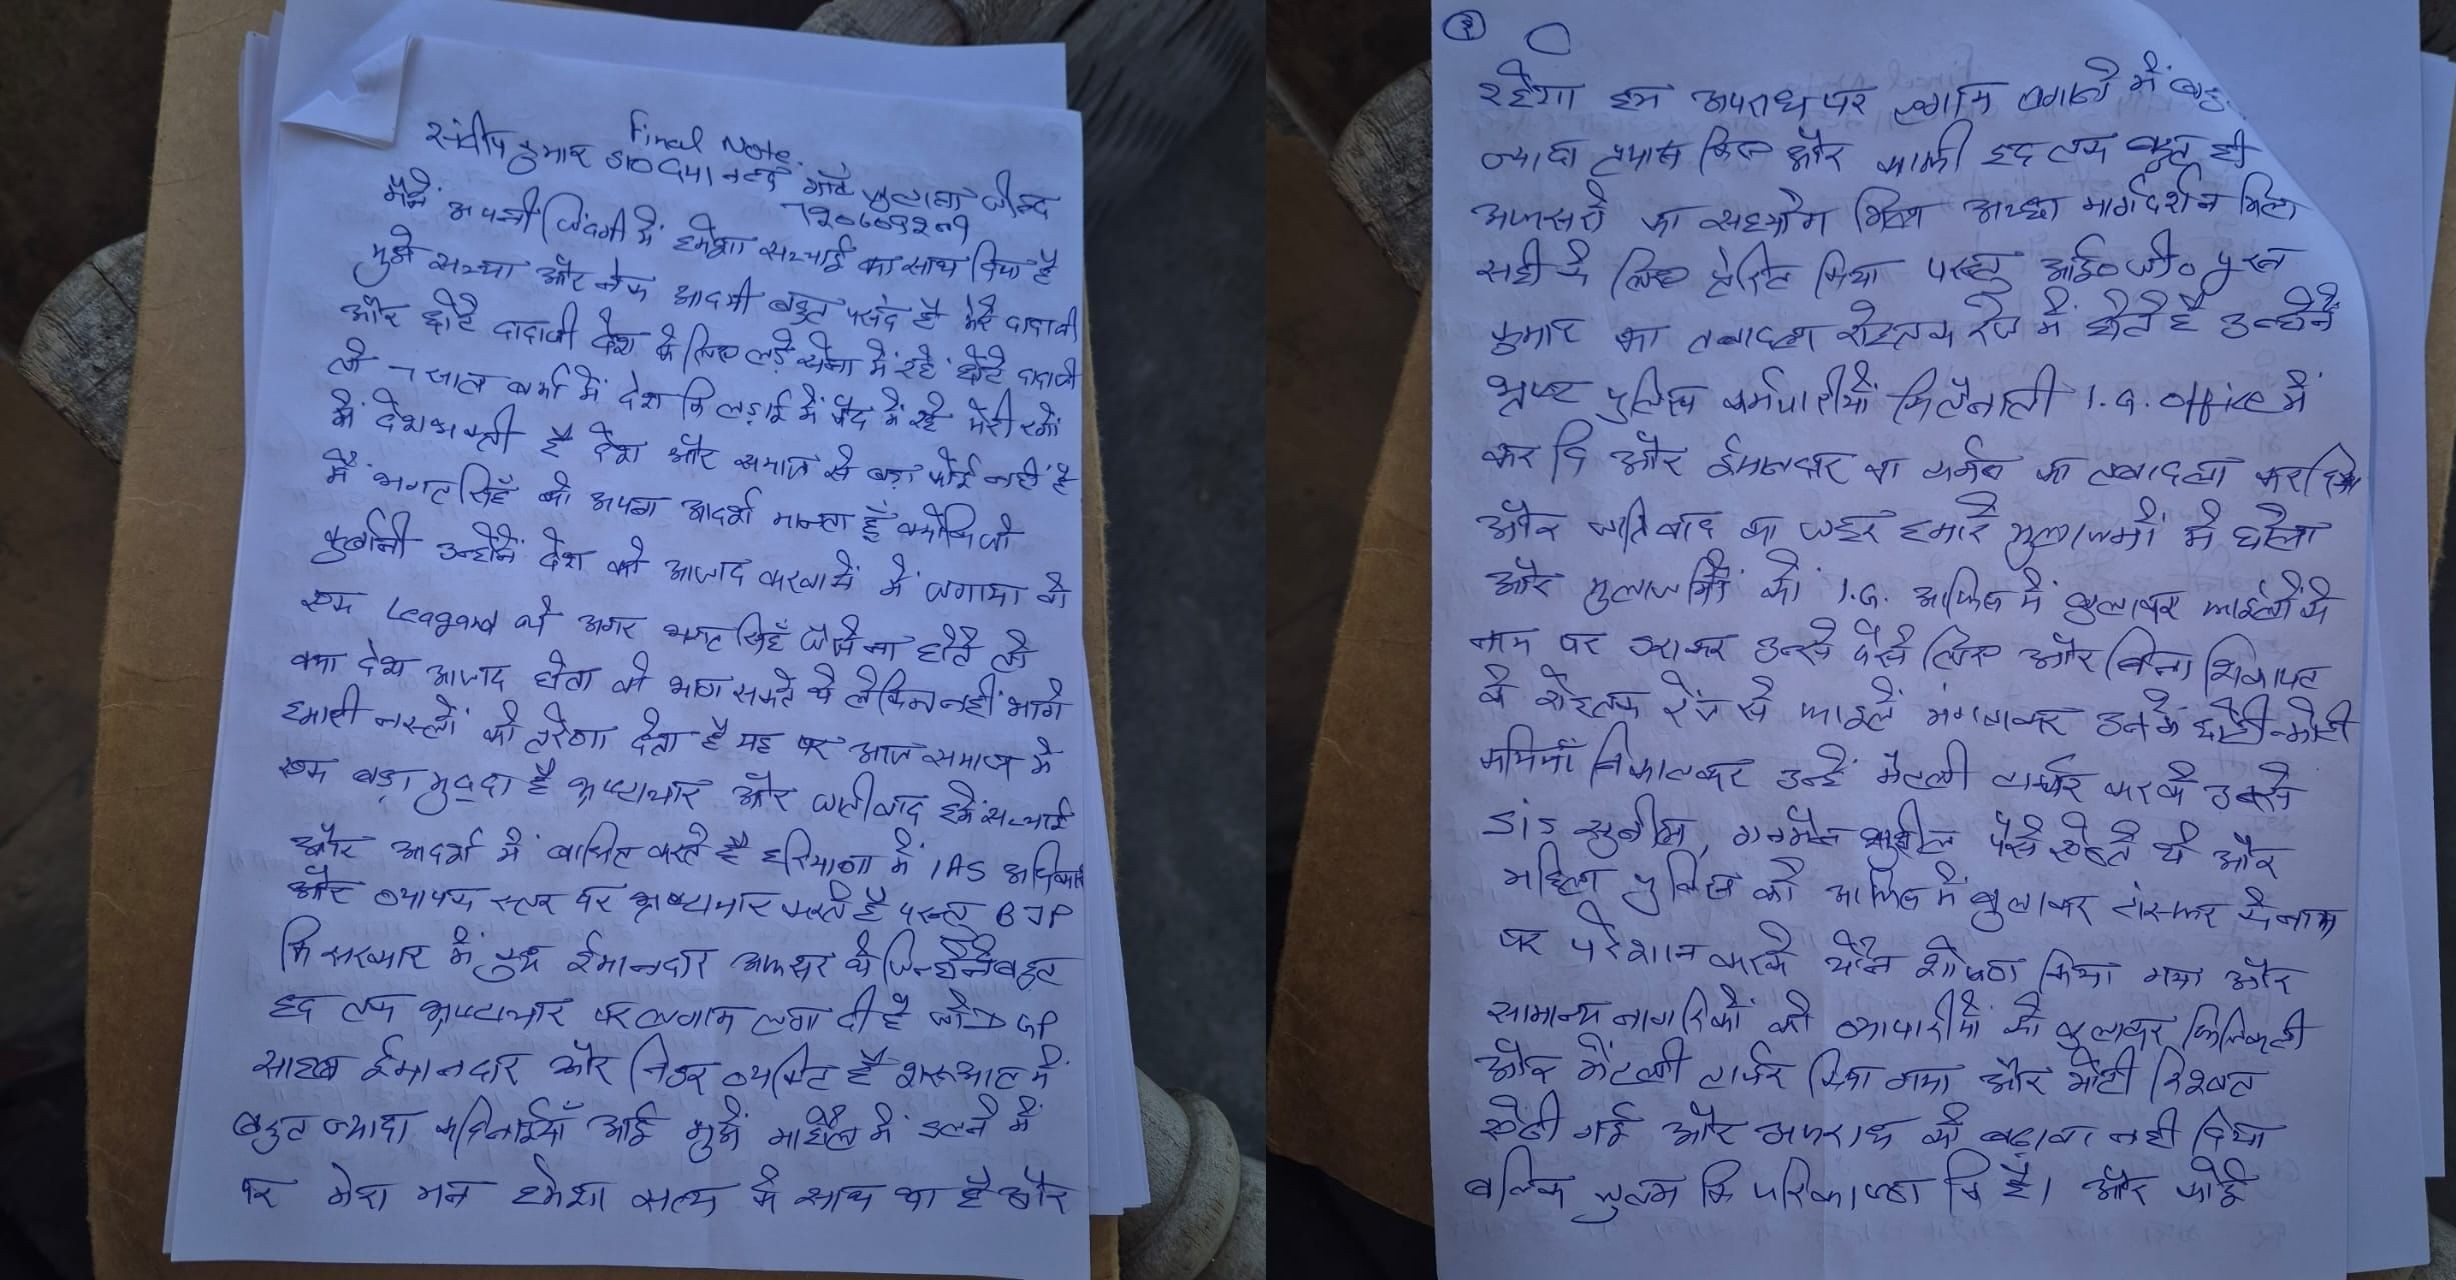 Final Note.
संदीप कुमार S/O दयानन्द गाँव जुलाना जीन्द
मैने अपनी जिंदगी में हमेशा सच्चाई का साथ दिया है
मुझे सच्चा और नेक आदमी बहुत पसंद है मेरे दादाजी
और छोटे दादाजी देश के लिए लड़े सेना में रहे छोटे दादाजी
तो 7 साल बर्मा में देश कि लड़ाई में कैद में रहे मेरी रगों
में देशभक्ती है देश और समाज से बड़ा कोई नहीं है
मैं भगत सिहँ को अपना आदर्श मानता हूँ क्योकि जो
कुर्बानी उन्होनें देश को आजाद करवाने में लगाया वो
एक Leagand थे अगर भगत सिहँ जैसे ना होते तो
क्या देश आजाद होता वो भाग सकते थे लेकिन नहीं भागे
हमारी नस्लों को प्रेरणा देता है यह पर आज समाज मे
एक बड़ा मुद्दा है भ्रष्टाचार और जातीवाद हमें सच्चाई
और आदर्श में बाधित करते है हरियाणा में IAS अधिकारी
और व्यापक स्तर पर भ्रष्टाचार करते है परन्तु BJP
कि सरकार में कुछ ईमानदार अफसर थे जिन्होनें बहुत
हद तक भ्रष्टाचार पर लगाम लगा दी है जो DGP
साहब ईमानदार और निडर व्यक्ति है शुरूआत में
बहुत ज्यादा कठिनाईयाँ आई मुझे माहौल में ढलने में
पर मेरा मन हमेशा सत्य के साथ था है और
रहेगा हम अपराध पर लगाम लगाने में बहु
ज्यादा प्रयास किए और काफी हद तक बहुत ही
अफसरो का सहयोग मिला अच्छा मार्गदर्शन मिला
सही के लिए प्रेरित किया परन्तु आई०जी० पूरन
कुमार का तबादला रोहतक रेंज में होते है उन्होनें
भ्रष्ट पुलिस कर्मचारीयों कि तैनाती I.G. office में
कर दि और ईमानदार का तबादला कर दिया
और जातिवाद का जहर हमारे मुलाजमों मे घोला
और मुलाजमों को I.G. आफिस में बुलाकर फाईलों के
नाम पर डराकर उनसे पैसे लिए और बिना शिकायत
के रोहतक रेंज से फाइलें मंगवाकर उनमें छोटी-मोटी
कमियाँ निकालकर उन्हें मैंटली टार्चर करके उनसे
SiS सुनील, गनमैन सुशील पैसे ऐंठते थे और
महिला पुलिस को आफिस में बुलाकर ट्रांसफर के नाम
पर परेशान करके यौन शोषण किया गया और
सामान्य नागरिकों को व्यापारीयों को बुलाकर फिजिकली
और मेंटली टार्चर किया गया और मोटी रिश्वत
ऐंठी गई और अपराध को बढ़ावा नही दिया
बल्कि जुल्म कि परिकाष्ठा कि है। और कोई